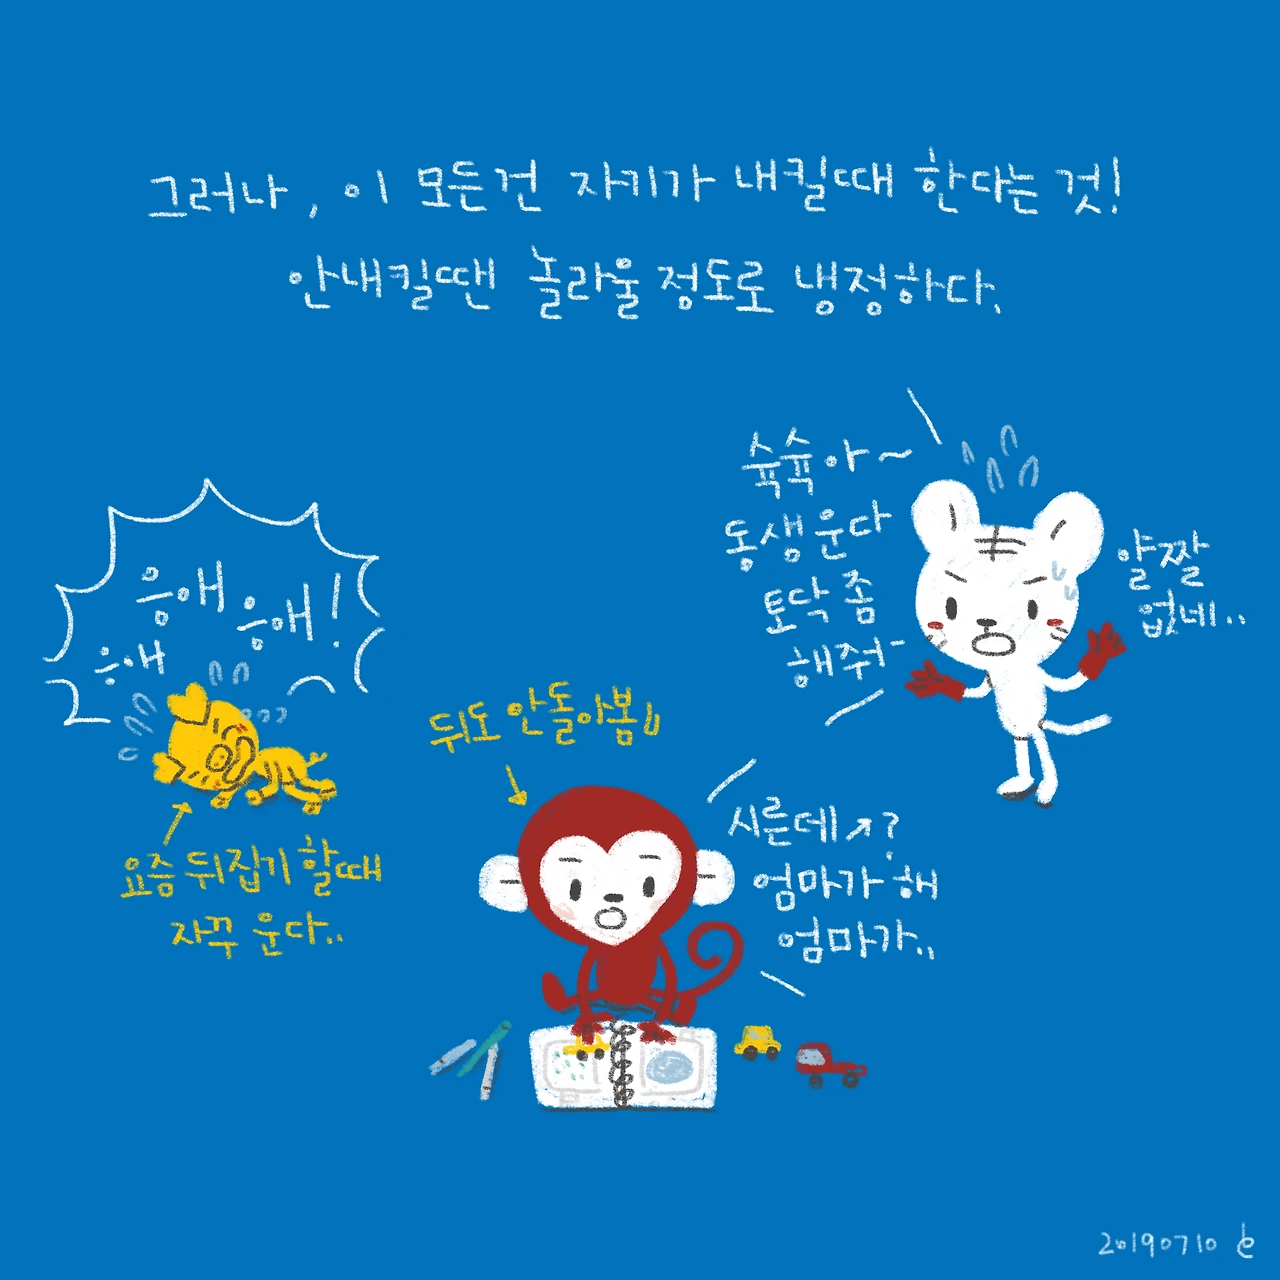 그러나, 이 모든건 자기가 내킬때 한다는 것!
안내킬땐 놀라울 정도로 냉정하다.
슉슉아~
동생 운다
토닥 좀
해줘
얄짤
없네..
응애
응애!
응애
요즘 뒤집기 할때
자꾸 운다..
뒤도 안돌아봄
시른데↗?
엄마가 해
엄마가..
20190710